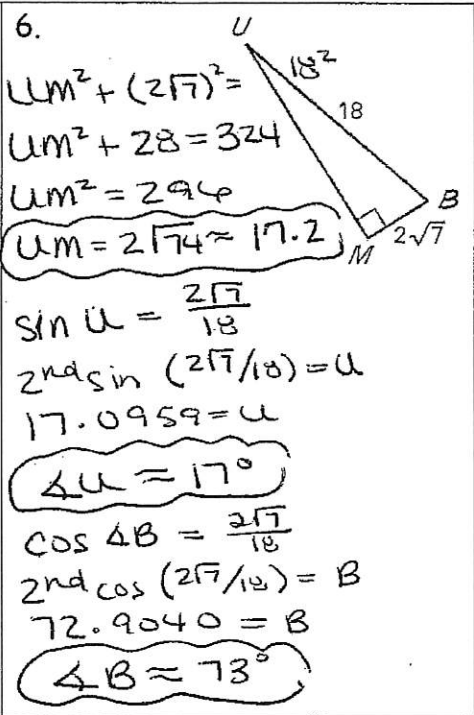 6.
U
UM² + (2√7)² = 18²
18
UM² + 28 = 324
UM² = 296
B
UM = 2√74 ≈ 17.2
M
2√7
sin U = 2√7/18
2nd sin (2√7/18) = U
17.0959 = U
∡U ≈ 17°
cos ∡B = 2√7/18
2nd cos (2√7/18) = B
72.9040 = B
∡B ≈ 73°